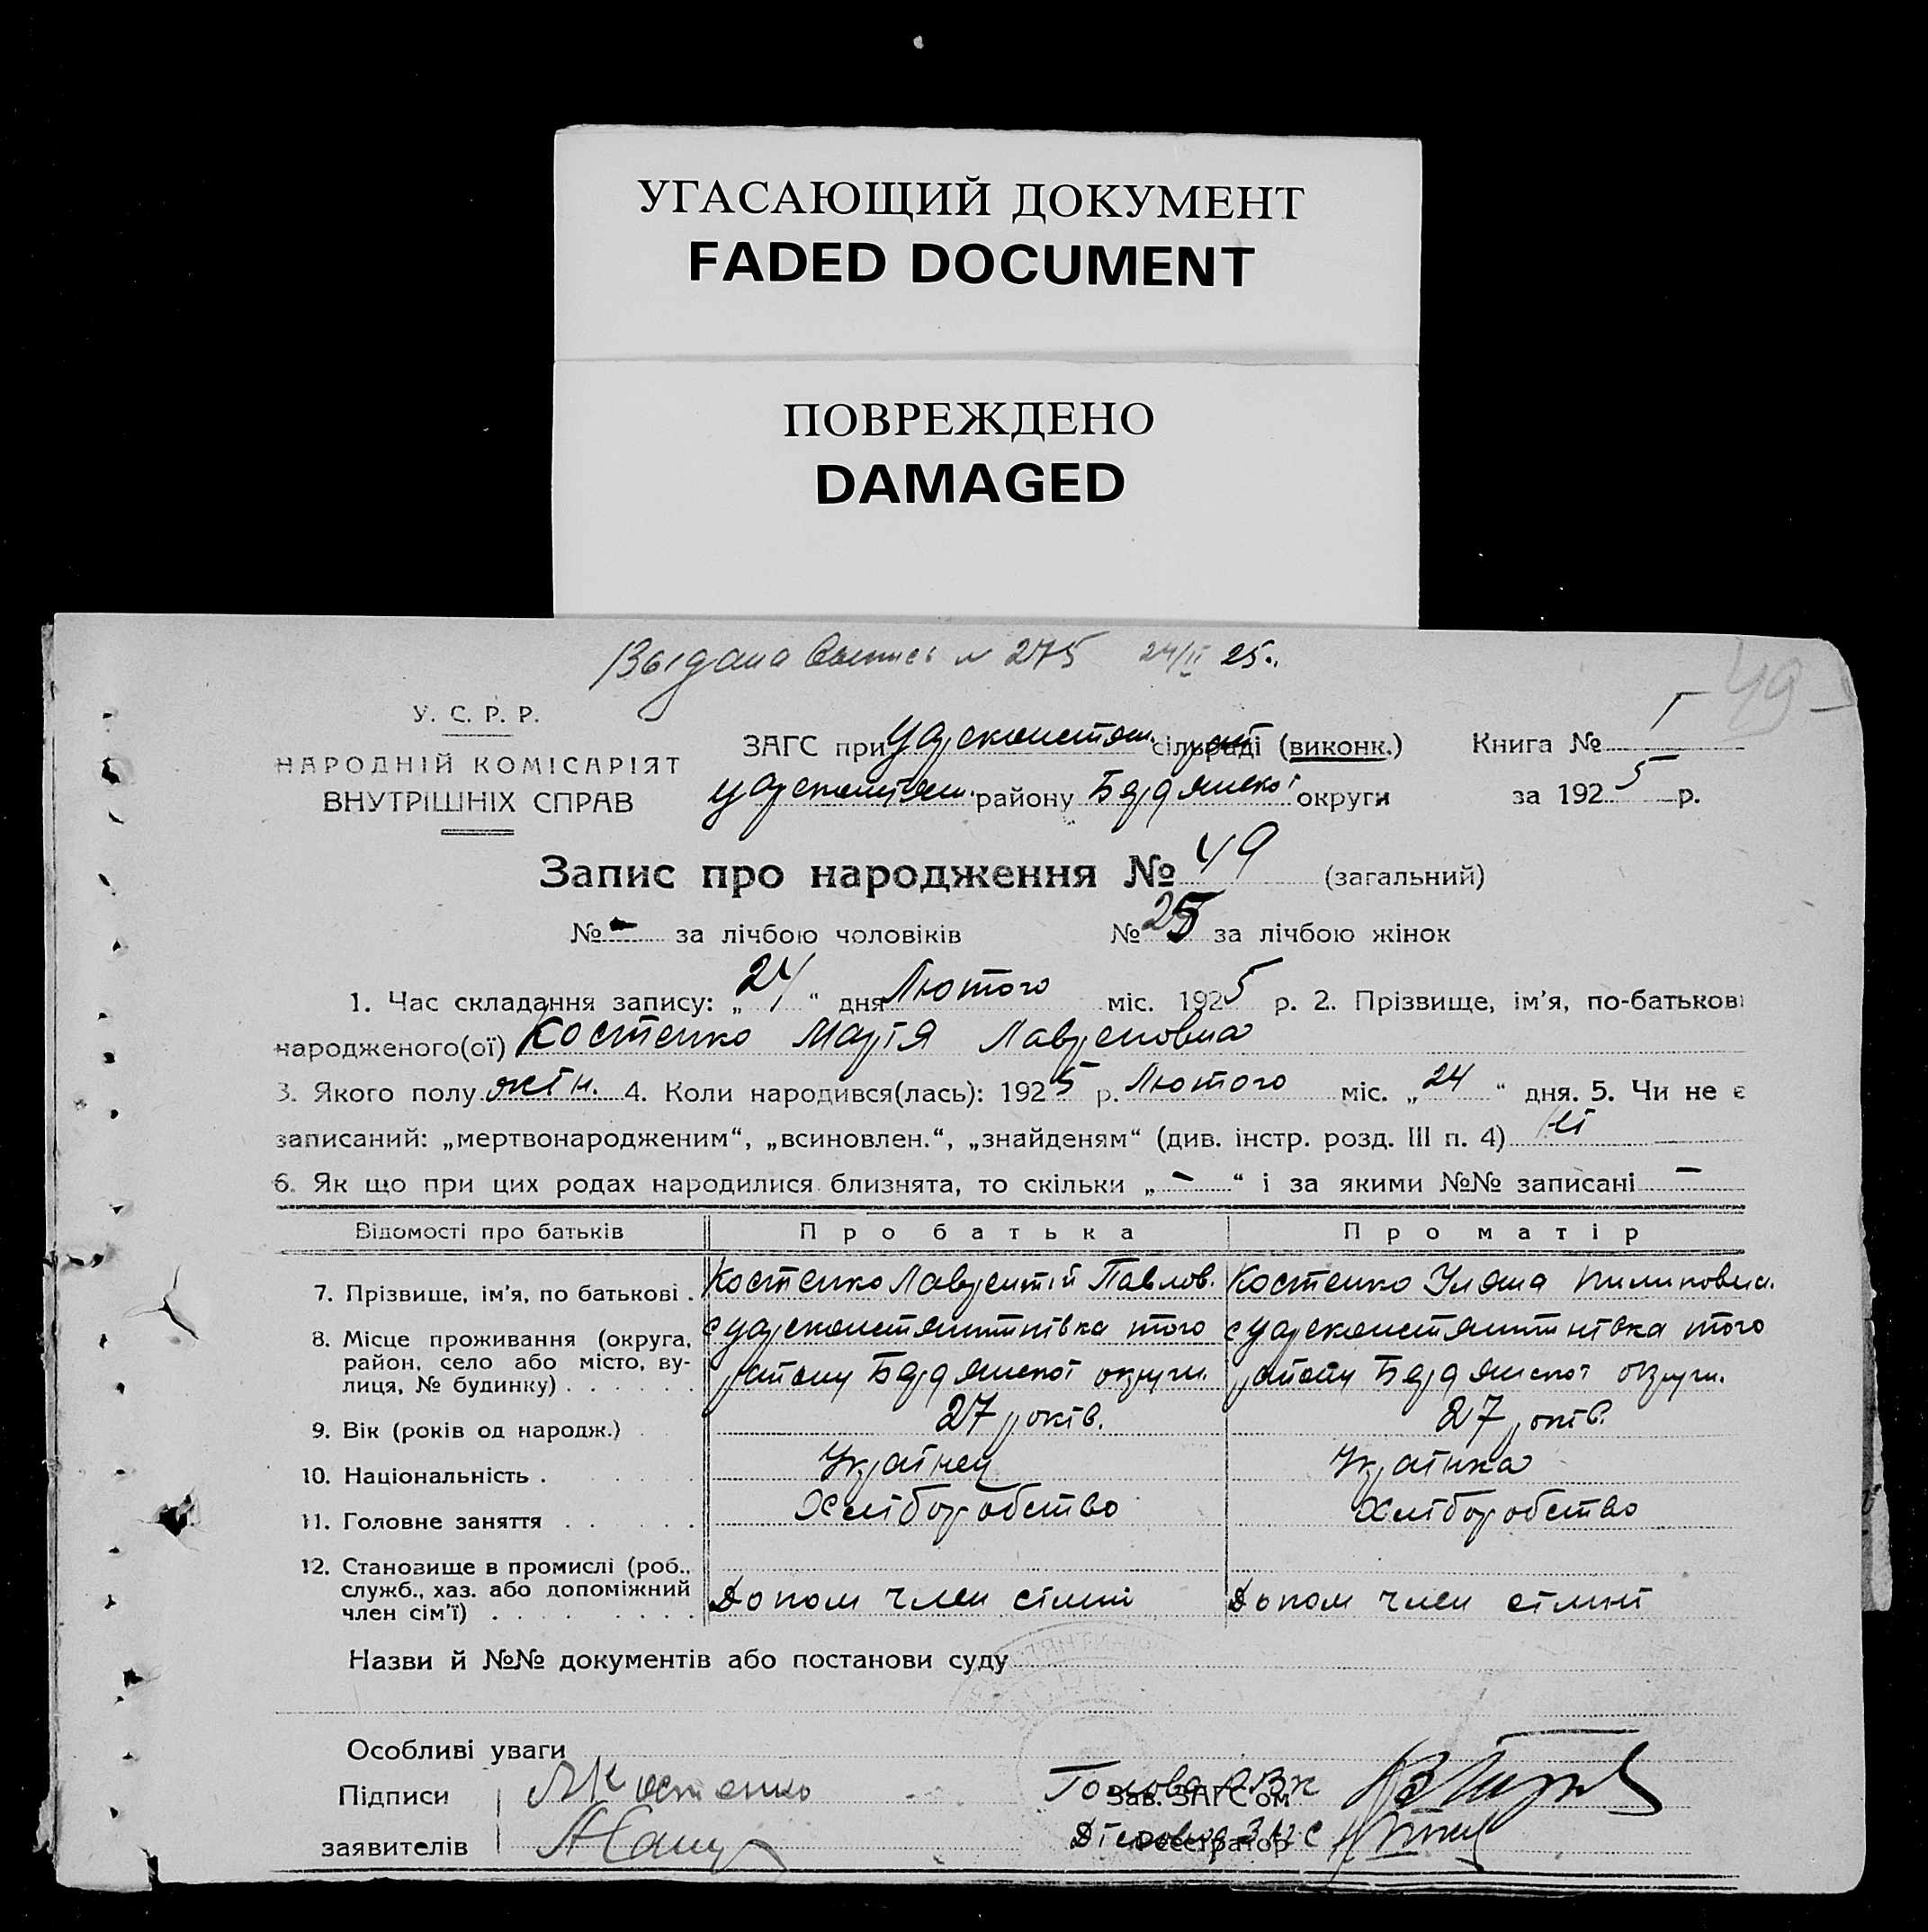 УГАСАЮЩИЙ ДОКУМЕНТ
FADED DOCUMENT
ПОВРЕЖДЕНО
DAMAGED
Выдана Выпись № 275 24/II 25.
49
У. С. Р. Р.
НАРОДНІЙ КОМІСАРІЯТ
ВНУТРІШНІХ СПРАВ
ЗАГС при Цареконстян. сільраді (виконк.)
Книга № 1
Цареконстян. району Бердянської округи
за 1925 р.
Запис про народження № 49 (загальний)
№ - за лічбою чоловіків № 25 за лічбою жінок
1. Час складання запису: „24“ дня Лютого міс. 1925 р. 2. Прізвище, ім'я, по-батькові
народженого(ої) Костенко Марія Лавреновна
3. Якого полу жін. 4. Коли народився(лась): 1925 р. Лютого міс. „24“ дня. 5. Чи не є
записаний: „мертвонародженим“, „всиновлен.“, „знайденям“ (див. інстр. розд. III п. 4) Ні
6. Як що при цих родах народилися близнята, то скільки „-“ і за якими №№ записані -
Відомості про батьків Про батька Про матір
7. Прізвище, ім'я, по батькові . Костенко Лаврентій Павлов. Костенко Уляна Пилиповна.
8. Місце проживання (округа, с Цареконстянтинівка того с Цареконстянтинівка того
район, село або місто, ву- району Бердянської округи. району Бердянської округи.
лиця, № будинку) . . . . . .
9. Вік (років од народж.) 27 років. 27 років.
10. Національність . Українец Українка
11. Головне заняття . . . . . Хліборобство Хліборобство
12. Становище в промислі (роб.,
служб., хаз. або допоміжний
член сім'ї) . . . . . . . . Допом член сімні Допом член сімні
Назви й №№ документів або постанови суду
Особливі уваги
Підписи Л Костенко Голова РВК Зав. ЗАГС'ом
заявителів Діловод ЗАГС Реєстратор